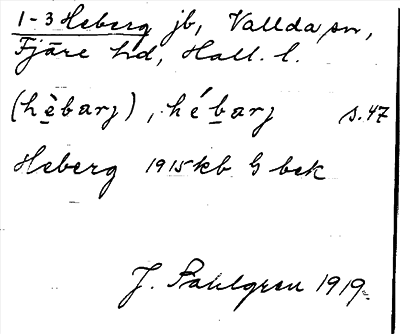 1-3 Heberg jb, Vallda sn,
Fjäre hd, Hall. l.
(hèbarj), hébarj s. 47
Heberg 1915 kb G bek
J. Sahlgren 1919